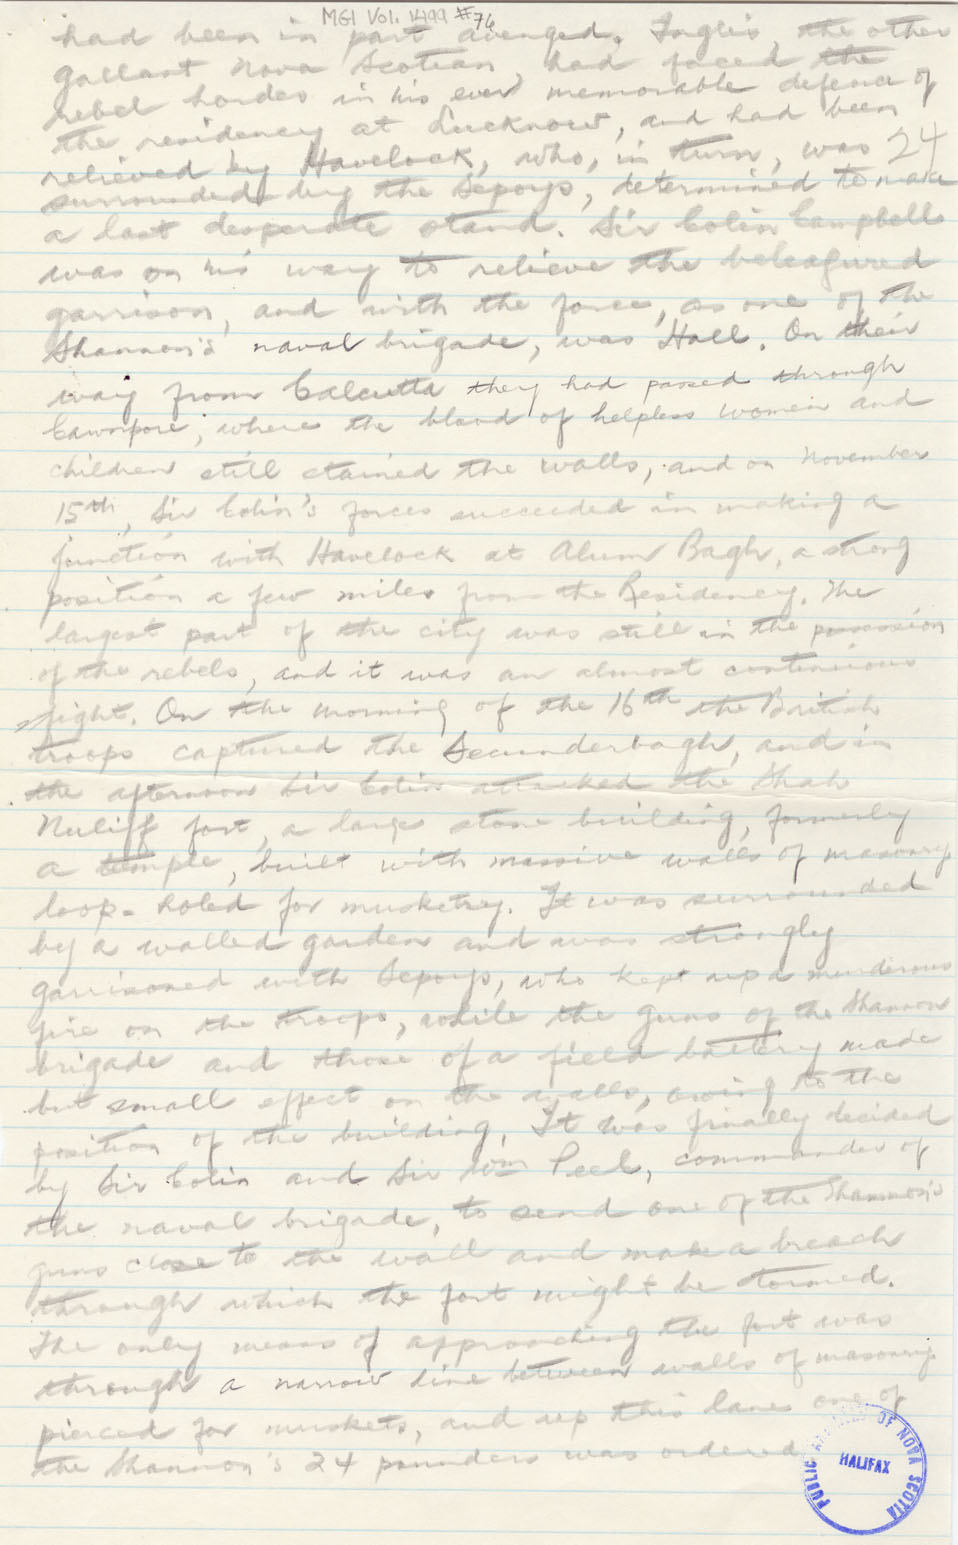 MG1 Vol. 1499 #76
had been in part avenged. Inglis, the other
gallant Nova Scotian, had faced the
rebel hordes in his ever memorable defence of
the residency at Lucknow, and had been
relieved by Havelock, who, in turn, was 24
surrounded by the Sepoys, determined to make
a last desperate stand. Sir Colin Campbell
was on his way to relieve the beleagured
garrison, and with the force, as one of the
Shannon's naval brigade, was Hall. On their
way from Calcutta they had passed through
Cawnpore, where the blood of helpless women and
children still stained the walls, and on November
15th, Sir Colin's forces succeeded in making a
junction with Havelock at Alum Bagh, a strong
position a few miles from the Residency. The
largest part of the city was still in the possession
of the rebels, and it was an almost continuous
fight. On the morning of the 16th the British
troops captured the Secunderbagh, and in
the afternoon Sir Colin attacked the Shah
Nuliff fort, a large stone building, formerly
a temple, built with massive walls of masonry
loop-holed for musketry. It was surrounded
by a walled garden and was strongly
garrisoned with Sepoys, who kept up a murderous
fire on the troops, while the guns of the Shannon
brigade and those of a field battery made
but small effect on the walls, owing to the
position of the building. It was finally decided
by Sir Colin and Sir Wm Peel, commander of
the naval brigade, to send one of the Shannon's
guns close to the wall and make a breach
through which the fort might be stormed.
The only means of approaching the fort was
through a narrow line between walls of masonry
pierced for muskets, and up this lane one of
the Shannon's 24 pounders was ordered
PUBLIC ARCHIVES OF NOVA SCOTIA
HALIFAX